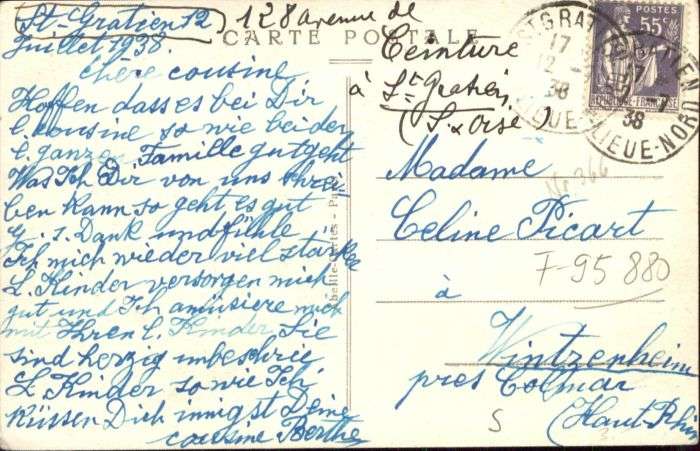 St-Gratien 12
Juillet 1938.
128 avenue de
Ceinture
à St Gratien
(S. & Oise)
CARTE POSTALE
chère cousine
Hoffen dass es bei Dir
l. cousine so wie bei der
l. ganze Famille gut geht
Was Ich Dir von uns schrei-
ben kann so geht es gut
G. s. Dank und fühle
Ich mich wieder viel starker
L. Kinder versorgen mich
gut und Ich amüsiere mich
mit Ihren l. Kinder Sie
sind herzig unbeschrie
L Kinder so wie Ich
küssen Dich innigst Deine
cousine Berthe
POSTES
55c
REPUBLIQUE FRANÇAISE
ST GRATIEN
17
12 - 7
38
Nr 366
Madame
Celine Picart
F-95 880
à
Wintzenheim
pres Colmar
(Haut-Rhin
S